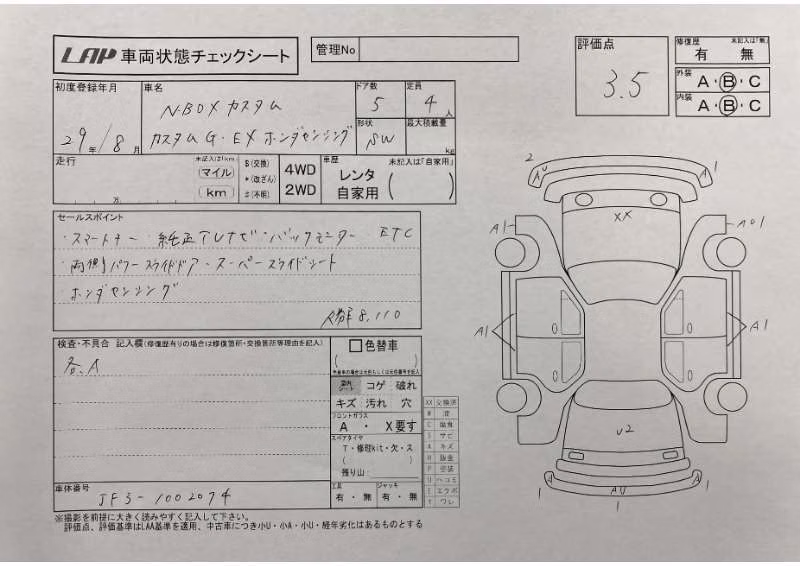 LAP 車両状態チェックシート
管理No
評価点
3.5
修復歴 未記入は「無」
有 無
外装 A・B・C
内装 A・B・C
初度登録年月
29年/8月
車名
N-BOX カスタム
カスタム G・EX ホンダセンシング
ドア数
5
定員
4人
形状
SW
最大積載量
kg
走行
未記入は1km
(マイル)
(km)
$(交換)
*(改ざん)
#(不明)
4WD
2WD
車歴 未記入は「自家用」
レンタ
自家用
セールスポイント
・スマートキー・純正TVナビ・バックモニター ETC
・両側パワースライドドア・スーパースライドシート
・ホンダセンシング
8,110
検査・不具合 記入欄(修復歴有りの場合は修復箇所・交換箇所等理由を記入)
各.A
色替車
コゲ 破れ
キズ 汚れ 穴
フロントガラス
A ・ X要す
スペアタイヤ
T・修理kit・欠・ス
残り山:
工具
有・無
ジャッキ
有・無
XX 交換済
W 波
C 腐食
S サビ
A キズ
H 板金
P 塗装
U ヘコミ
E エクボ
Y ワレ
車体番号
JF3-1002074
※撮影を前提に大きく読みやすく記入して下さい。
評価点、評価基準はLAA基準を適用、中古車につき小U・小A・小U・経年劣化はあるものとする
2
AU
A
1
XX
A1
A01
A1
A1
U2
A
1
AU
1
A
1